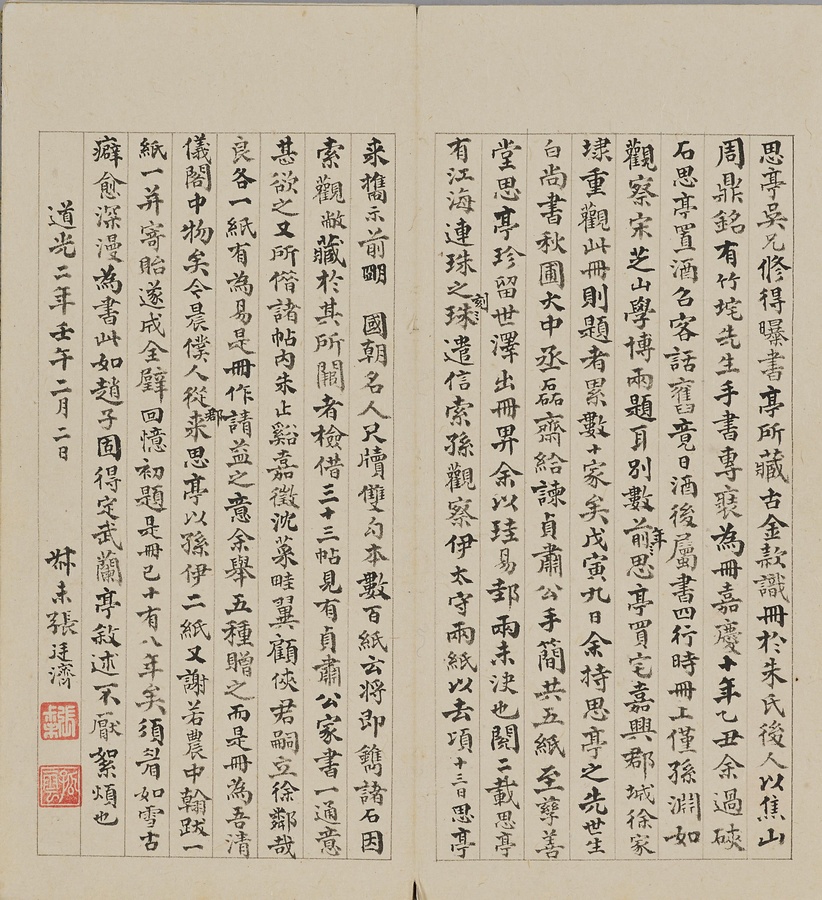 思亭吳兄修得曝書亭所藏古金款識冊於朱氏後人以焦山
周鼎銘有竹垞先生手書專裝為冊嘉慶十年乙丑余過硤
石思亭置酒召客話舊竟日酒後屬書四行時冊上僅孫淵如
觀察宋芝山學博兩題耳別數年前思亭買宅嘉興郡城徐家
埭重觀此冊則題者累數十家矣戊寅九日余持思亭之先世生
白尚書秋圃大中丞磊齋給諫貞肅公手簡共五紙至孳善
堂思亭珍留世澤出冊畀余以珪易郵兩未決也閱二載思亭
有江海連珠之刻遣信索孫觀察伊太守兩紙以去頃十三日思亭
来攜示前朙 國朝名人尺牘雙勾本數百紙云將即鐫諸石因
索觀敝藏於其所闕者檢借三十三帖見有貞肅公家書一通意
甚欲之又所偕諸帖內朱止谿嘉徵沈菉畦翼顧俠君嗣立徐鄰哉
良各一紙有為易是冊作請益之意余舉五種贈之而是冊為吾清
儀閣中物矣今晨僕人從郡来思亭以孫伊二紙又謝若農中翰跋一
紙一并寄貽遂成全璧回憶初題是冊已十有八年矣須眉如雪古
癖愈深漫為書此如趙子固得定武蘭亭敘述不厭絮煩也
道光二年壬午二月二日 叔未張廷濟